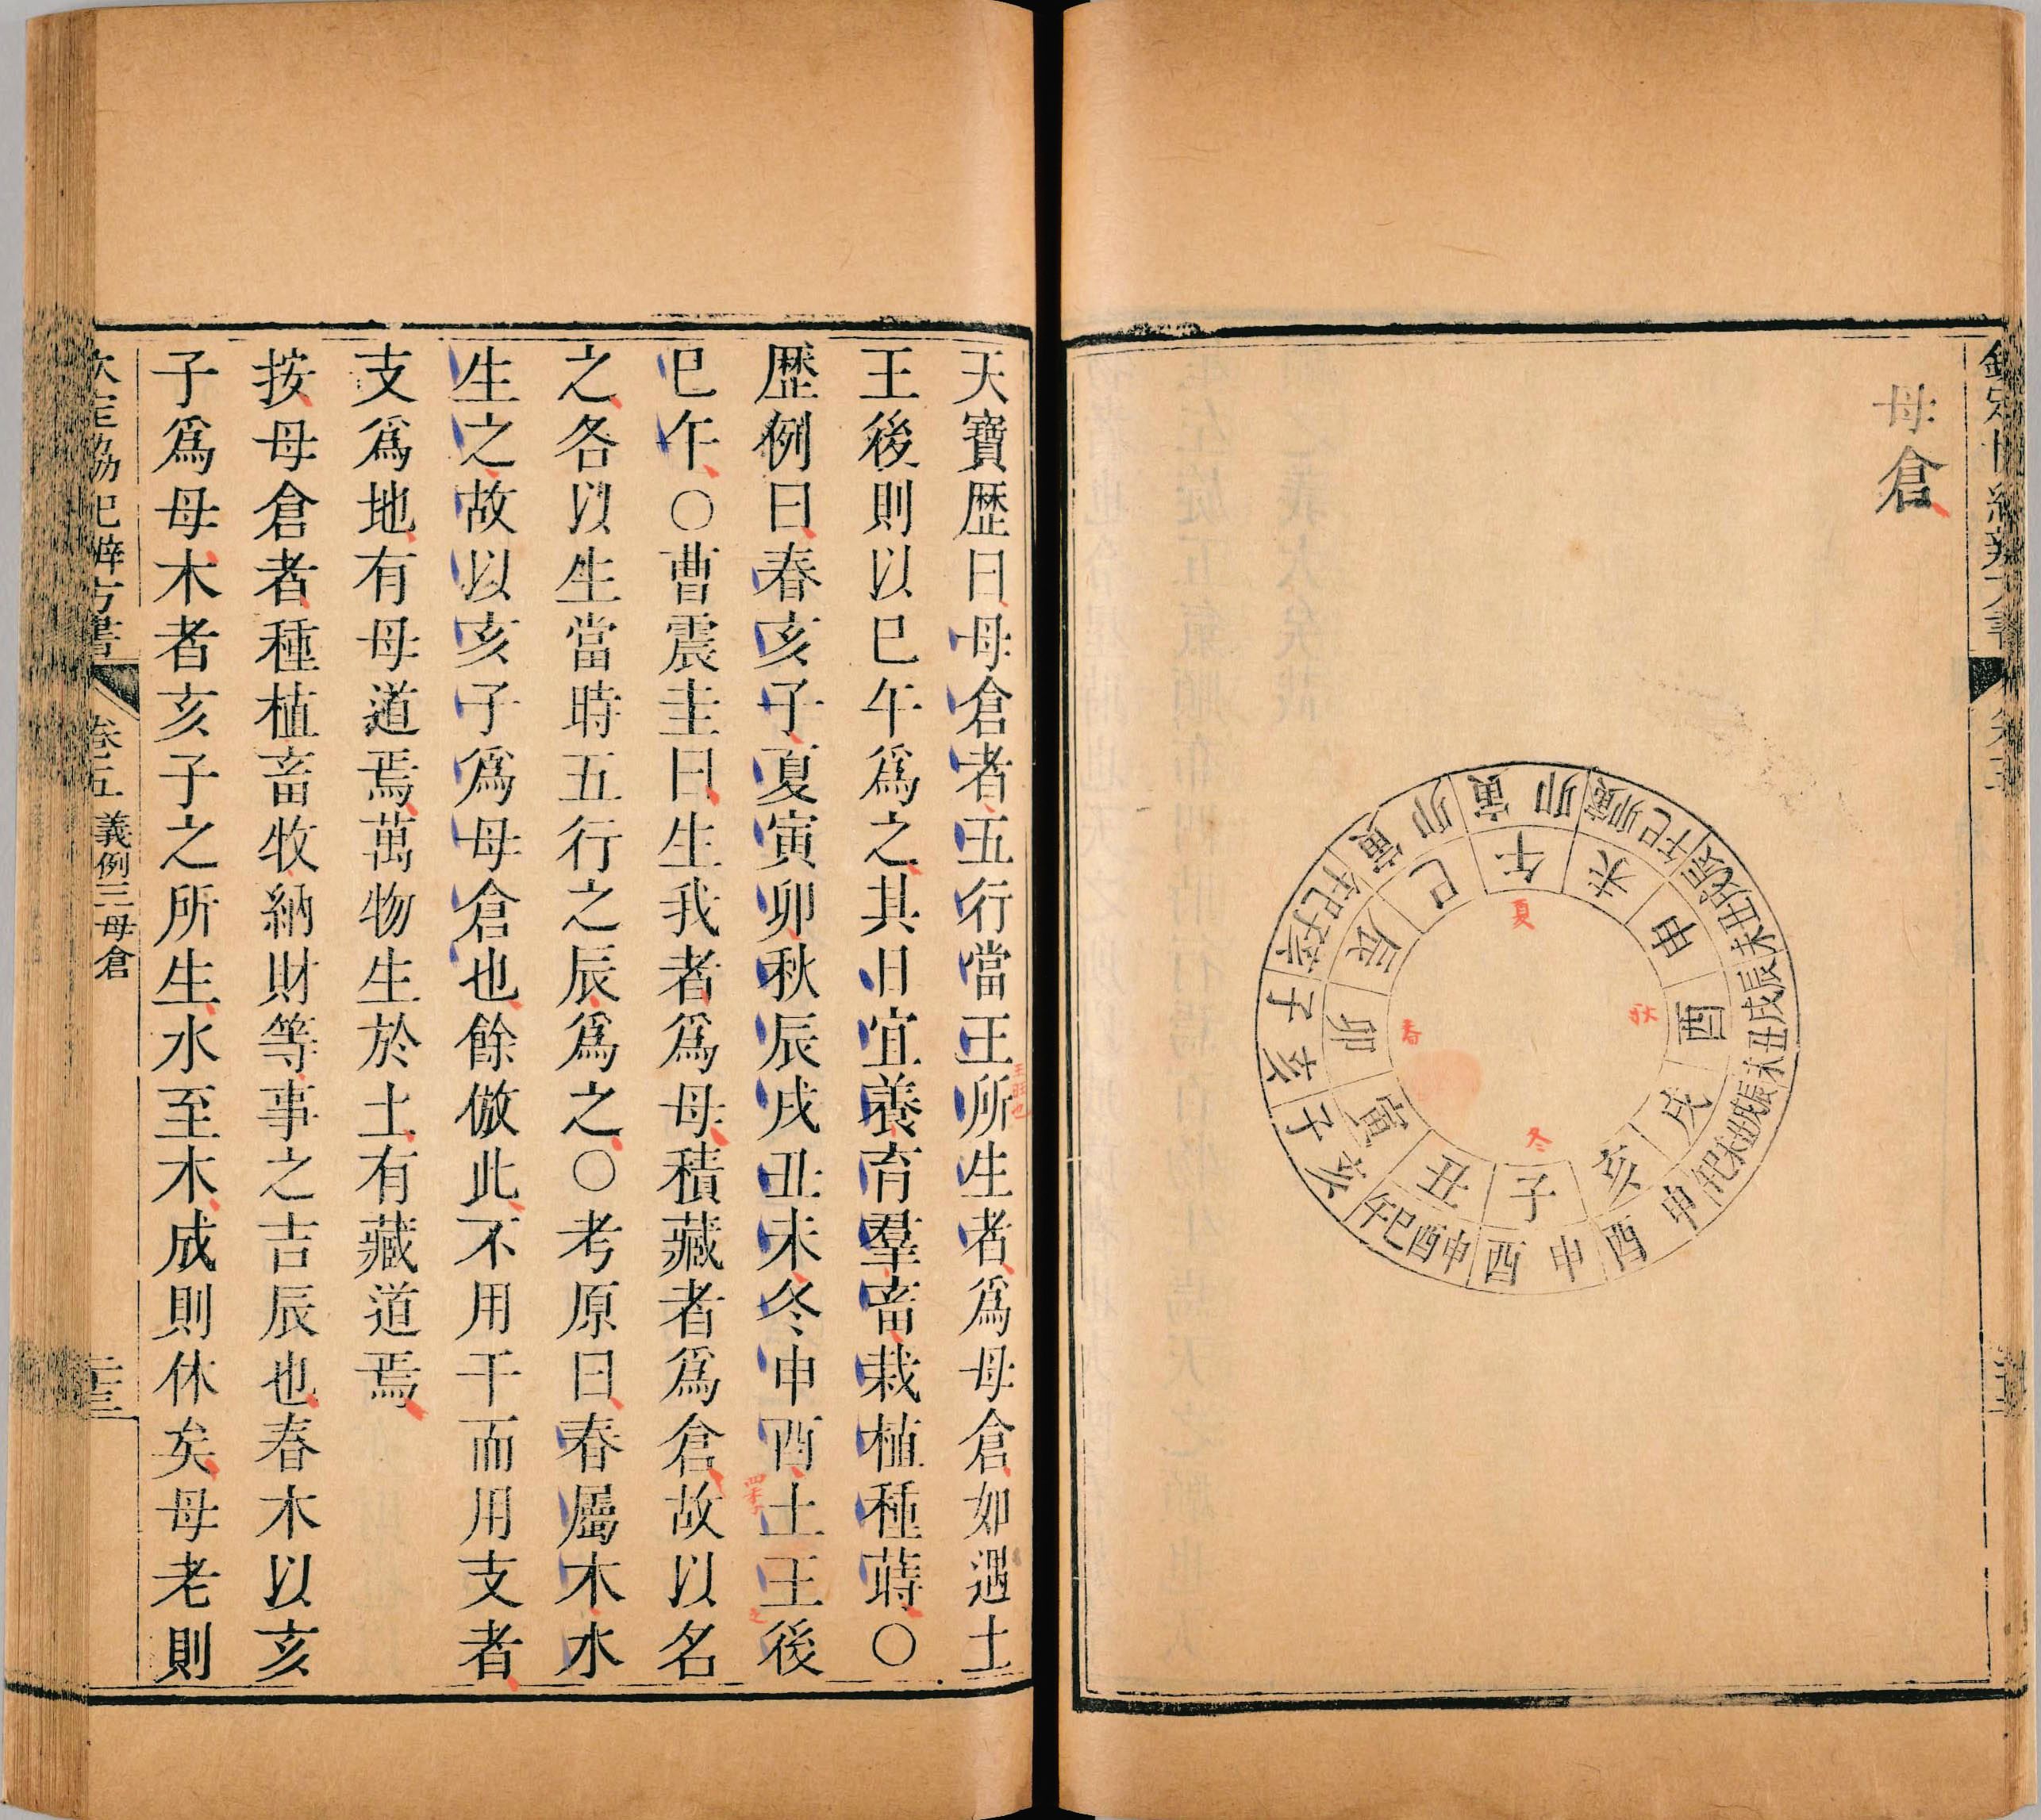 母倉
午
未
申
酉
戌
亥
子
丑
寅
卯
辰
巳
寅卯
寅卯巳午
辰戌丑未
辰戌丑未
辰戌丑未巳午
申酉
申酉
申酉巳午
亥子
亥子
亥子巳午
寅卯
夏
秋
冬
春
天寶歷曰母倉者五行當王所生者爲母倉如遇土
王後則以巳午爲之其日宜養育羣畜栽植種蒔○
歷例曰春亥子夏寅卯秋辰戌丑未冬申酉土王後
巳午○曹震圭曰生我者爲母積藏者爲倉故以名
之各以生當時五行之辰爲之○考原曰春屬木水
生之故以亥子爲母倉也餘倣此不用干而用支者
支爲地有母道焉萬物生於土有藏道焉
按母倉者種植畜牧納財等事之吉辰也春木以亥
子爲母木者亥子之所生水至木成則休矣母老則
王旺也
四季
之
欽定協紀辨方書 卷五 義例三 母倉